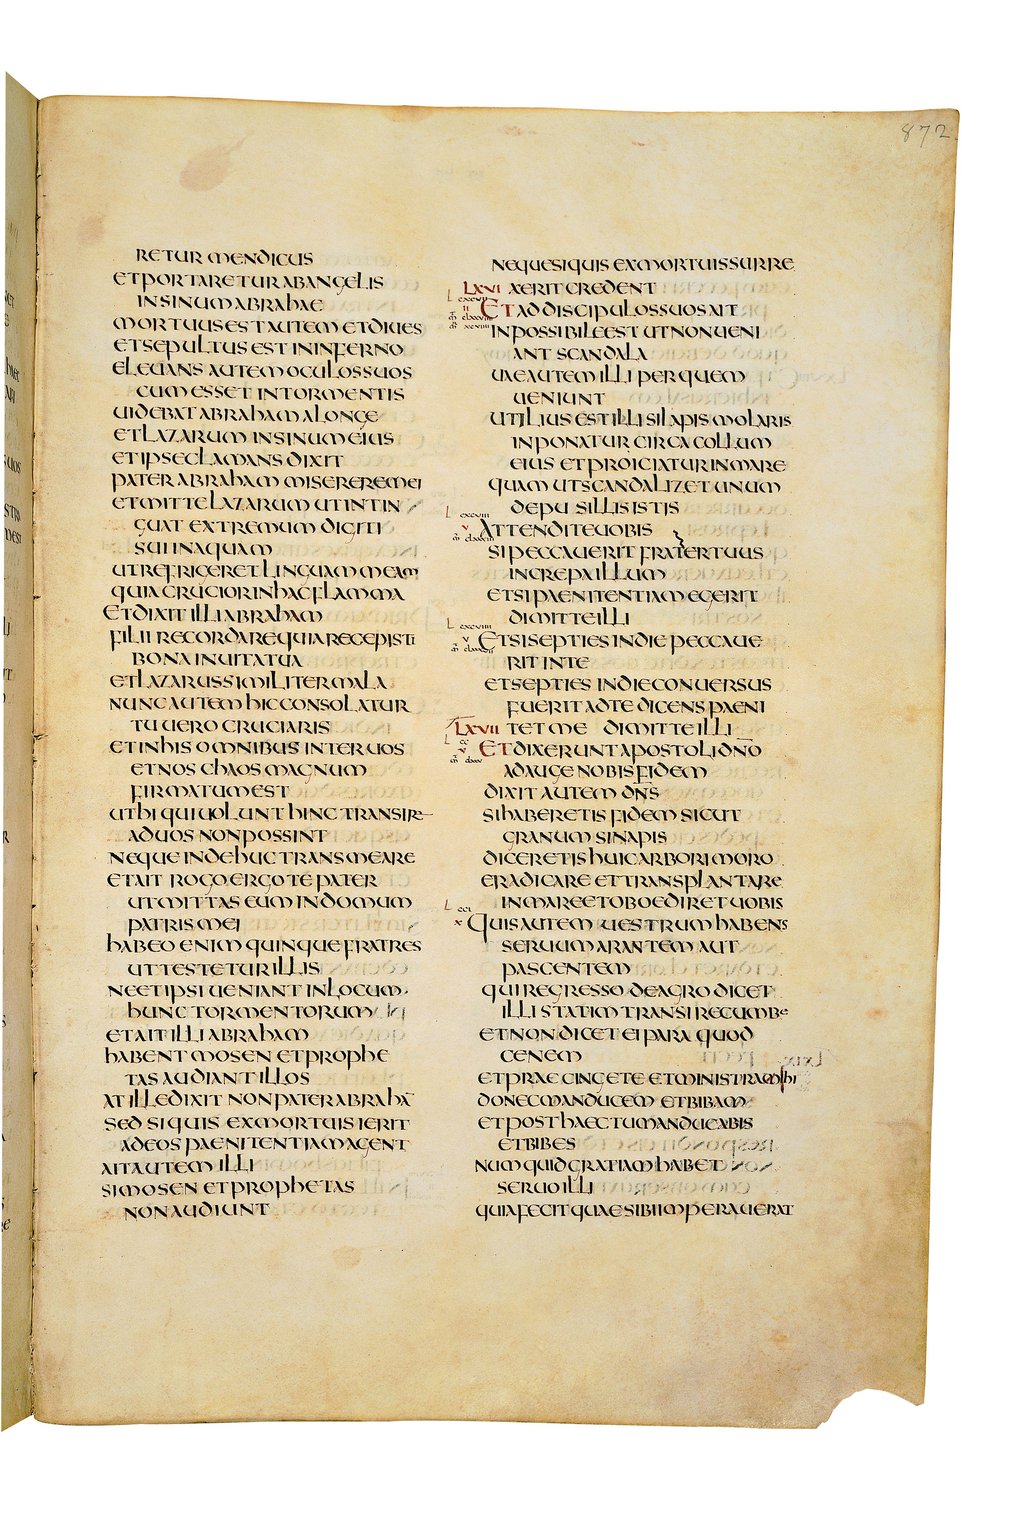 872
RETUR MENDICUS
ETPORTARETURABANGELIS
INSINUMABRAHAE
MORTUUSESTAUTEM ETDIUES
ETSEPULTUS EST ININFERNO
ELEUANS AUTEM OCULOSSUOS
CUM ESSET INTORMENTIS
UIDEBAT ABRAHAM ALONGE
ETLAZARUM INSINUMEIUS
ETIPSECLAMANS DIXIT
PATER ABRAHAM MISEREREMEI
ETMITTELAZARUM UTINTIN
GUAT EXTREMUM DIGITI
SUI INAQUAM
UTREFRIGERET LINGUAM MEAM
QUIACRUCIORINHACFLAMMA
ETDIXIT ILLI ABRAHAM
FILII RECORDAREQUIARECEPISTI
BONAINUITATUA
ETLAZARUSSIMILITERMALA
NUNCAUTEM HICCONSOLATUR
TUUERO CRUCIARIS
ETINHIS OMNIBUS INTERUOS
ETNOS CHAOS MAGNUM
FIRMATUMEST
UTHI QUIUOLUNT HINC TRANSIRE
ADUOS NONPOSSINT
NEQUE INDEHUC TRANSMEARE
ETAIT ROGOERGOTE PATER
UTMITTAS EUM INDOMUM
PATRISMEI
HABEO ENIM QUINQUE FRATRES
UTTESTETUR ILLIS
NEETIPSI UENIANT INLOCUM
HUNCTORMENTORUM
ETAITILLI ABRAHAM
HABENT MOSEN ETPROPHE
TAS AUDIANT ILLOS
ATILLEDIXIT NONPATERABRAHĀ
SED SIQUIS EXMORTUIS IERIT
ADEOS PAENITENTIAMAGENT
AITAUTEM ILLI
SIMOSEN ETPROPHETAS
NONAUDIUNT
NEQUESIQUIS EXMORTUISSURRE
LXVI XERIT CREDENT
ETADDISCIPULOSSUOSAIT
INPOSSIBILEEST UTNONUENI
ANT SCANDALA
UAEAUTEM ILLI PERQUEM
UENIUNT
UTILIUS ESTILLI SILAPIS MOLARIS
INPONATUR CIRCACOLLUM
EIUS ETPROICIATURINMARE
QUAM UTSCANDALIZET UNUM
DEPUSILLISISTIS
ATTENDITEUOBIS
SIPECCAUERIT FRATERTUUS
INCREPAILLUM
ETSIPAENITENTIAM EGERIT
DIMITTEILLI
ETSISEPTIES INDIE PECCAUE
RIT INTE
ETSEPTIES INDIECONUERSUS
FUERIT ADTE DICENS PAENI
LXVII TET ME DIMITTE ILLI
ETDIXERUNTAPOSTOLI DN̄O
ADAUGE NOBIS FIDEM
DIXIT AUTEM DN̄S
SIHABERETIS FIDEM SICUT
GRANUM SINAPIS
DICERETISHUICARBORIMORO
ERADICARE ETTRANSPLANTARE
INMAREETOBOEDIRETUOBIS
QUISAUTEM UESTRUM HABENS
SERUUM ARANTEM AUT
PASCENTEM
QUI REGRESSO DEAGRO DICET
ILLI STATIM TRANSI RECUMBE
ETNONDICET EI PARA QUOD
CENEM
ETPRAECINGETE ETMINISTRAMIHI
DONECMANDUCEM ETBIBAM
ETPOSTHAECTUMANDUCABIS
ETBIBES
NUMQUIDGRATIAMHABET
SERUOILLI
QUIAFECITQUAESIBIIMPERAUERAT